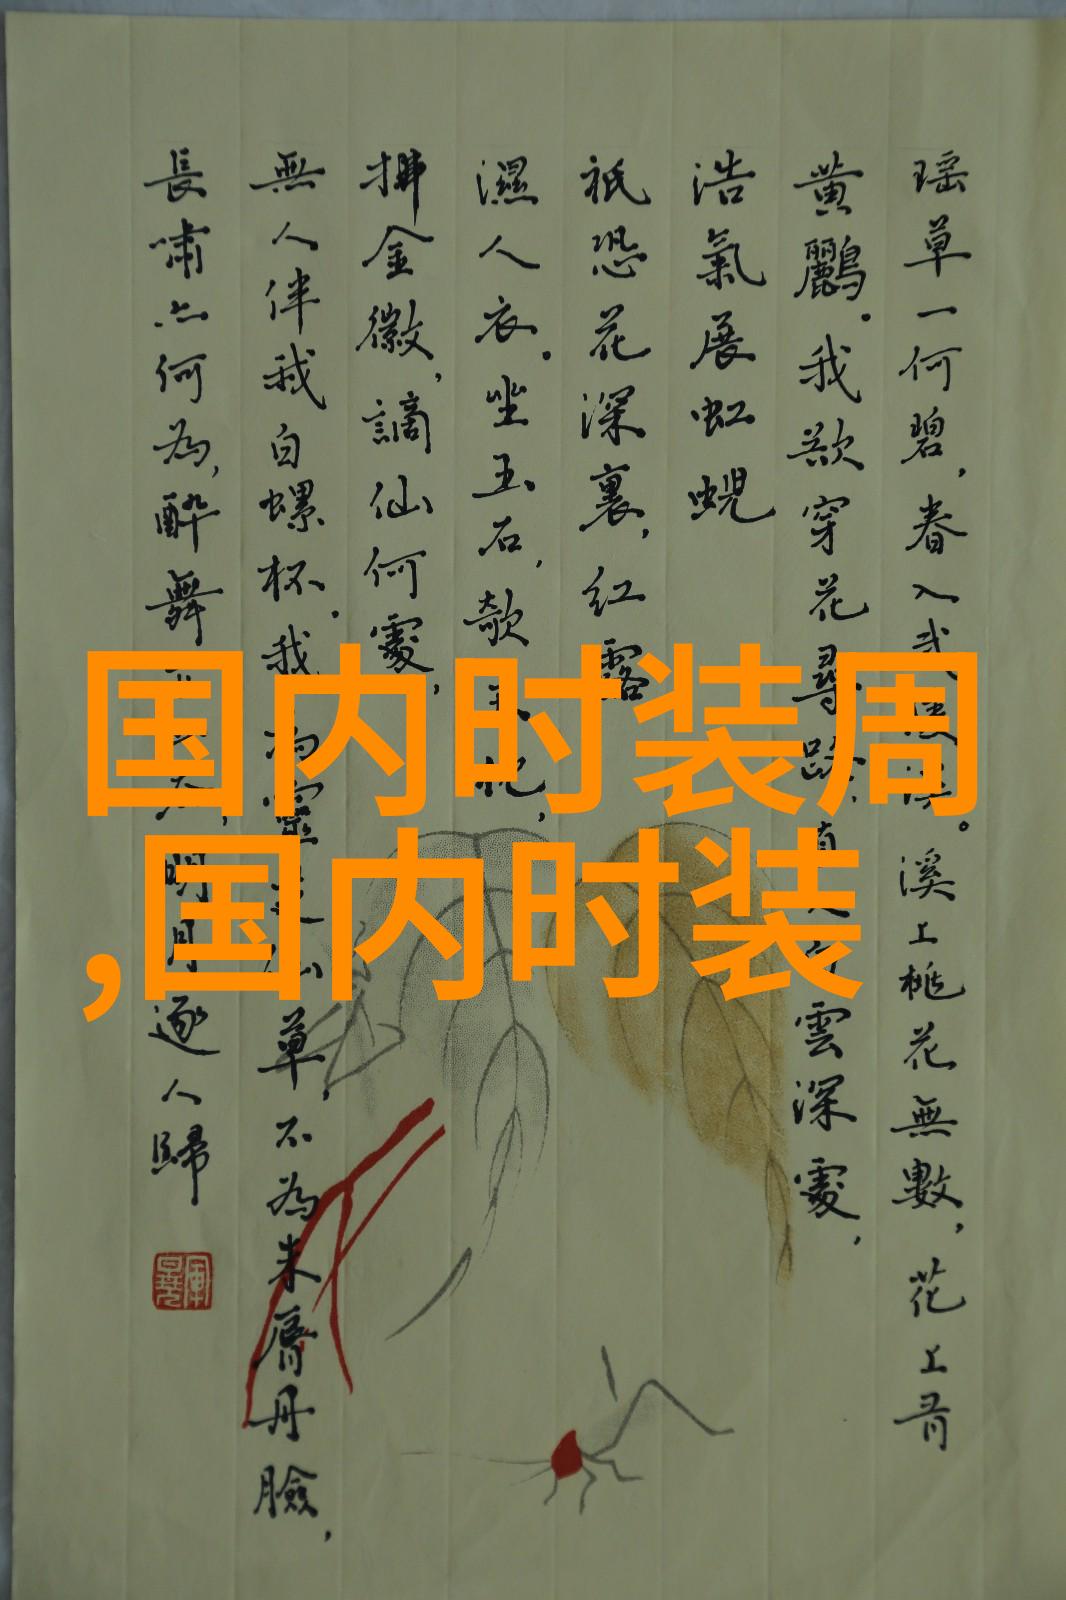 国内时装周
,国内时装
瑶草一何碧，春入武陵溪。溪上桃花無數，花上有
黄鸝。我欲穿花尋路，直入白雲深處，
浩氣展虹蜺
祇恐花深裏，紅露
濕人衣。坐玉石，欹玉枕，
拂金徽，謫仙何處，
無人伴我白螺杯。我為靈芝仙草，不為朱脣丹臉，
長嘯亦何為，醉舞下山去，明月逐人歸